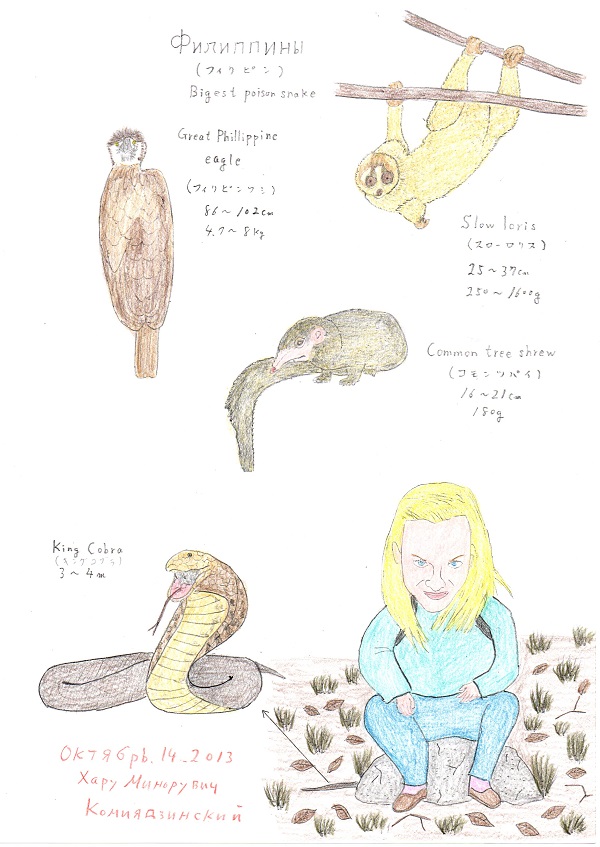 Филиппины
(フィリピン)
Bigest poison snake
Great Phillippine
eagle
(フィリピンワシ)
86~102cm
4.7~8kg
Slow loris
(スローロリス)
25~37cm
250~1600g
Common tree shrew
(コモンツパイ)
16~21cm
180g
King Cobra
(キングコブラ)
3~4m
Октябрь.14_2013
Хару Минорувич
Комиядзинский